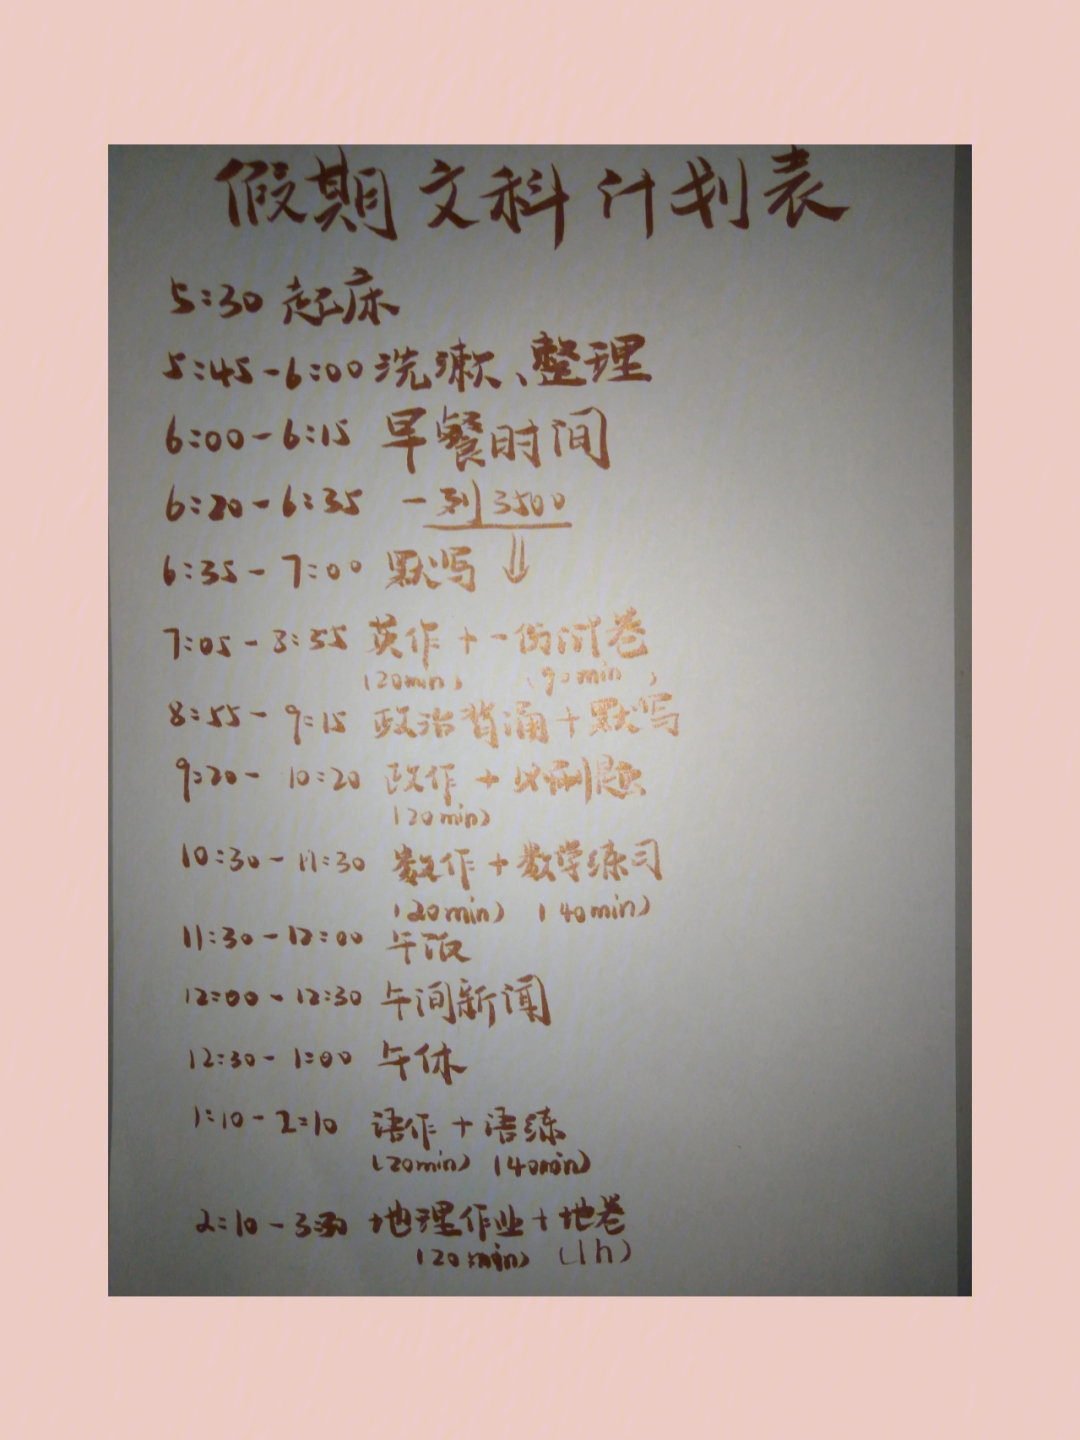 假期文科计划表
5:30 起床
5:45-6:00 洗漱、整理
6:00-6:15 早餐时间
6:20-6:35 一列3500
6:35-7:00 默写 ⇓
7:05-8:55 英作+一份试卷
(20min) (90min)
8:55-9:15 政治背诵+默写
9:20-10:20 政作+必刷题
(20min)
10:30-11:30 数作+数学练习
(20min) (40min)
11:30-12:00 午饭
12:00-12:30 午间新闻
12:30-1:00 午休
1:10-2:10 语作+语练
(20min) (40min)
2:10-3:30 地理作业+地卷
(20min) (1h)